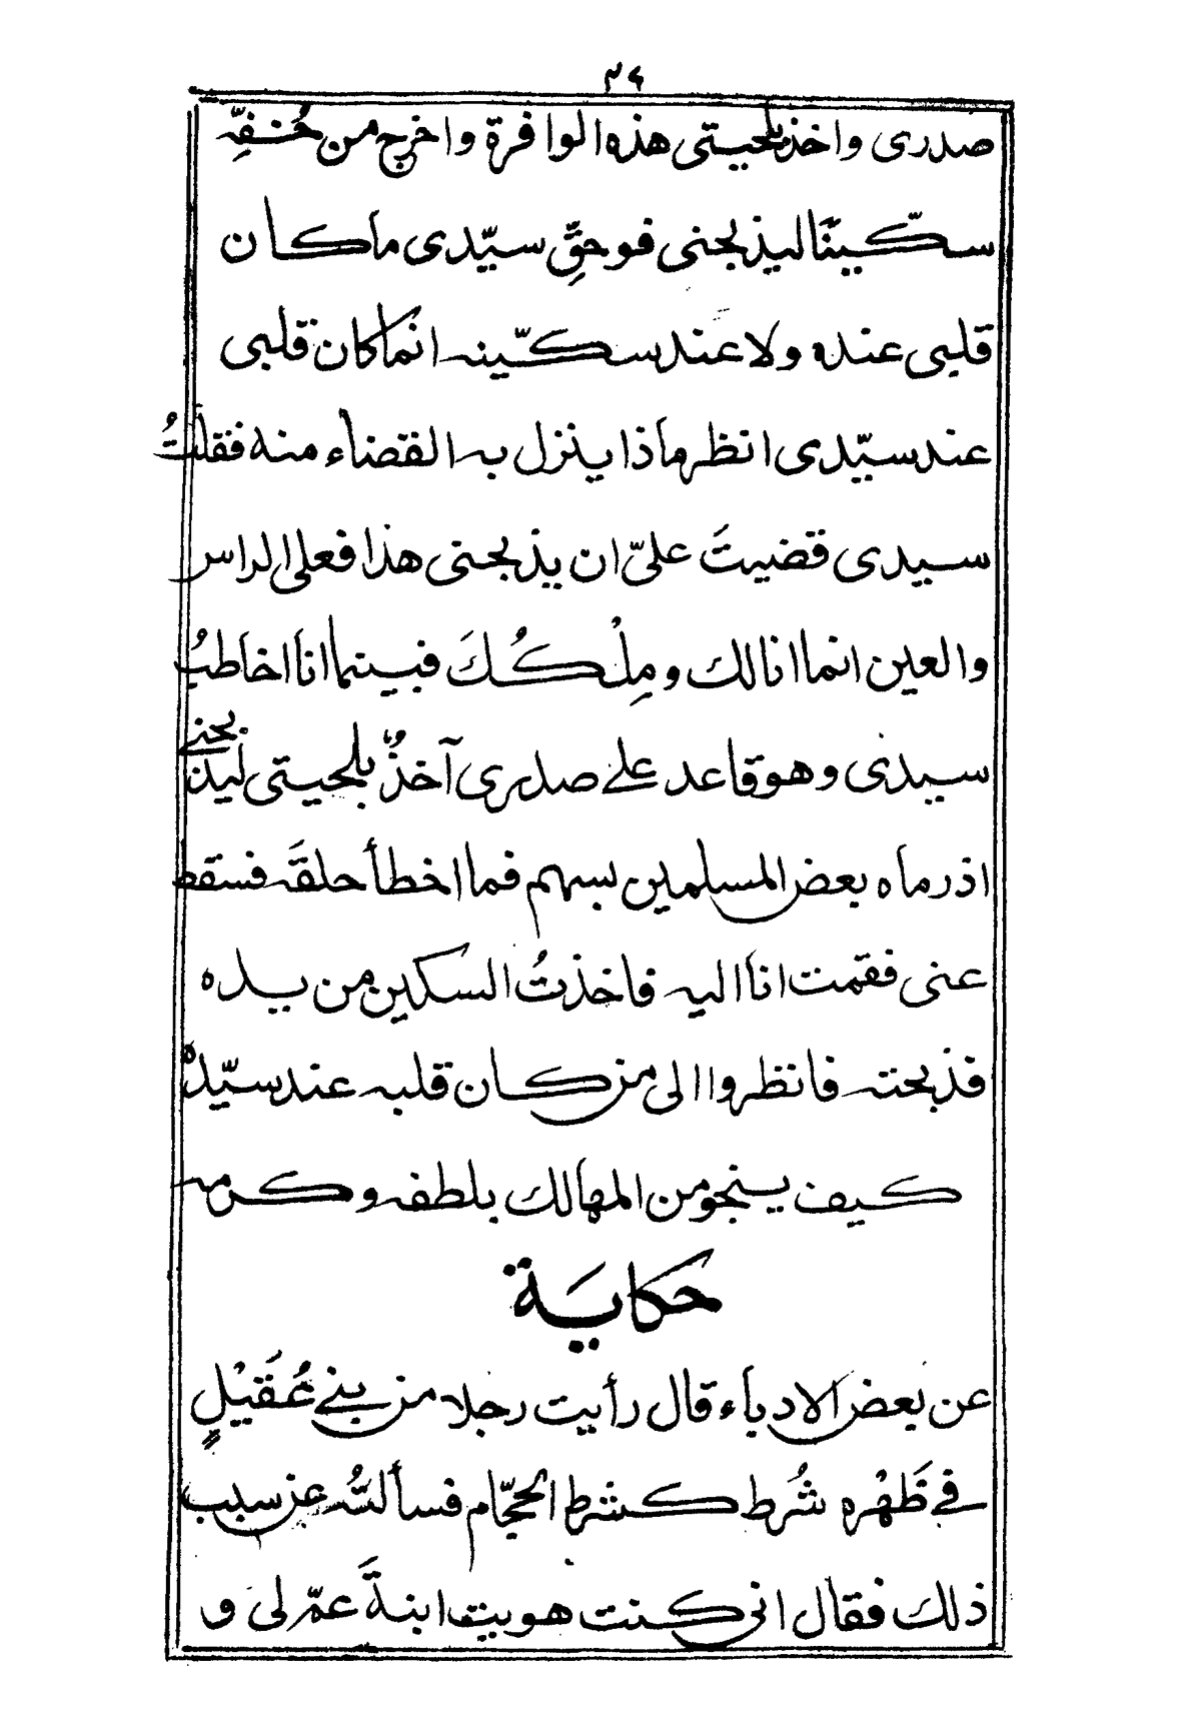 ٣٤
صدرى واخذ بلحيتى هذه الوافرة واخرج من خُفِّه
سكّينًا ليذبحنى فوحقِّ سيّدى ما كان
قلبى عنده ولا عند سكّينه انما كان قلبى
عند سيّدى انظر ماذا ينزل به القضاء منه فقلتُ
سيدى قضيتَ علىّ ان يذبحنى هذا فعلى الراس
والعين انما انا لك ومِلْكُكَ فبينما انا اخاطبُ
سيدى وهو قاعد على صدرى آخذٌ بلحيتى ليذبحنى
اذ رماه بعض المسلمين بسهم فما اخطأ حلقَه فسقط
عنى فقمت انا اليه فاخذتُ السكين من يده
فذبحته فانظروا الى من كان قلبه عند سيّدهْ
كيف ينجو من المهالك بلطفه وكرمه
حكايَة
عن بعض الادباء قال رأيت رجلا من بنى عُقَيْلٍ
فى ظَهْره شُرط كشرط الحجّام فسألتُه عن سبب
ذلك فقال انى كنت هويت ابنةَ عمّ لى و